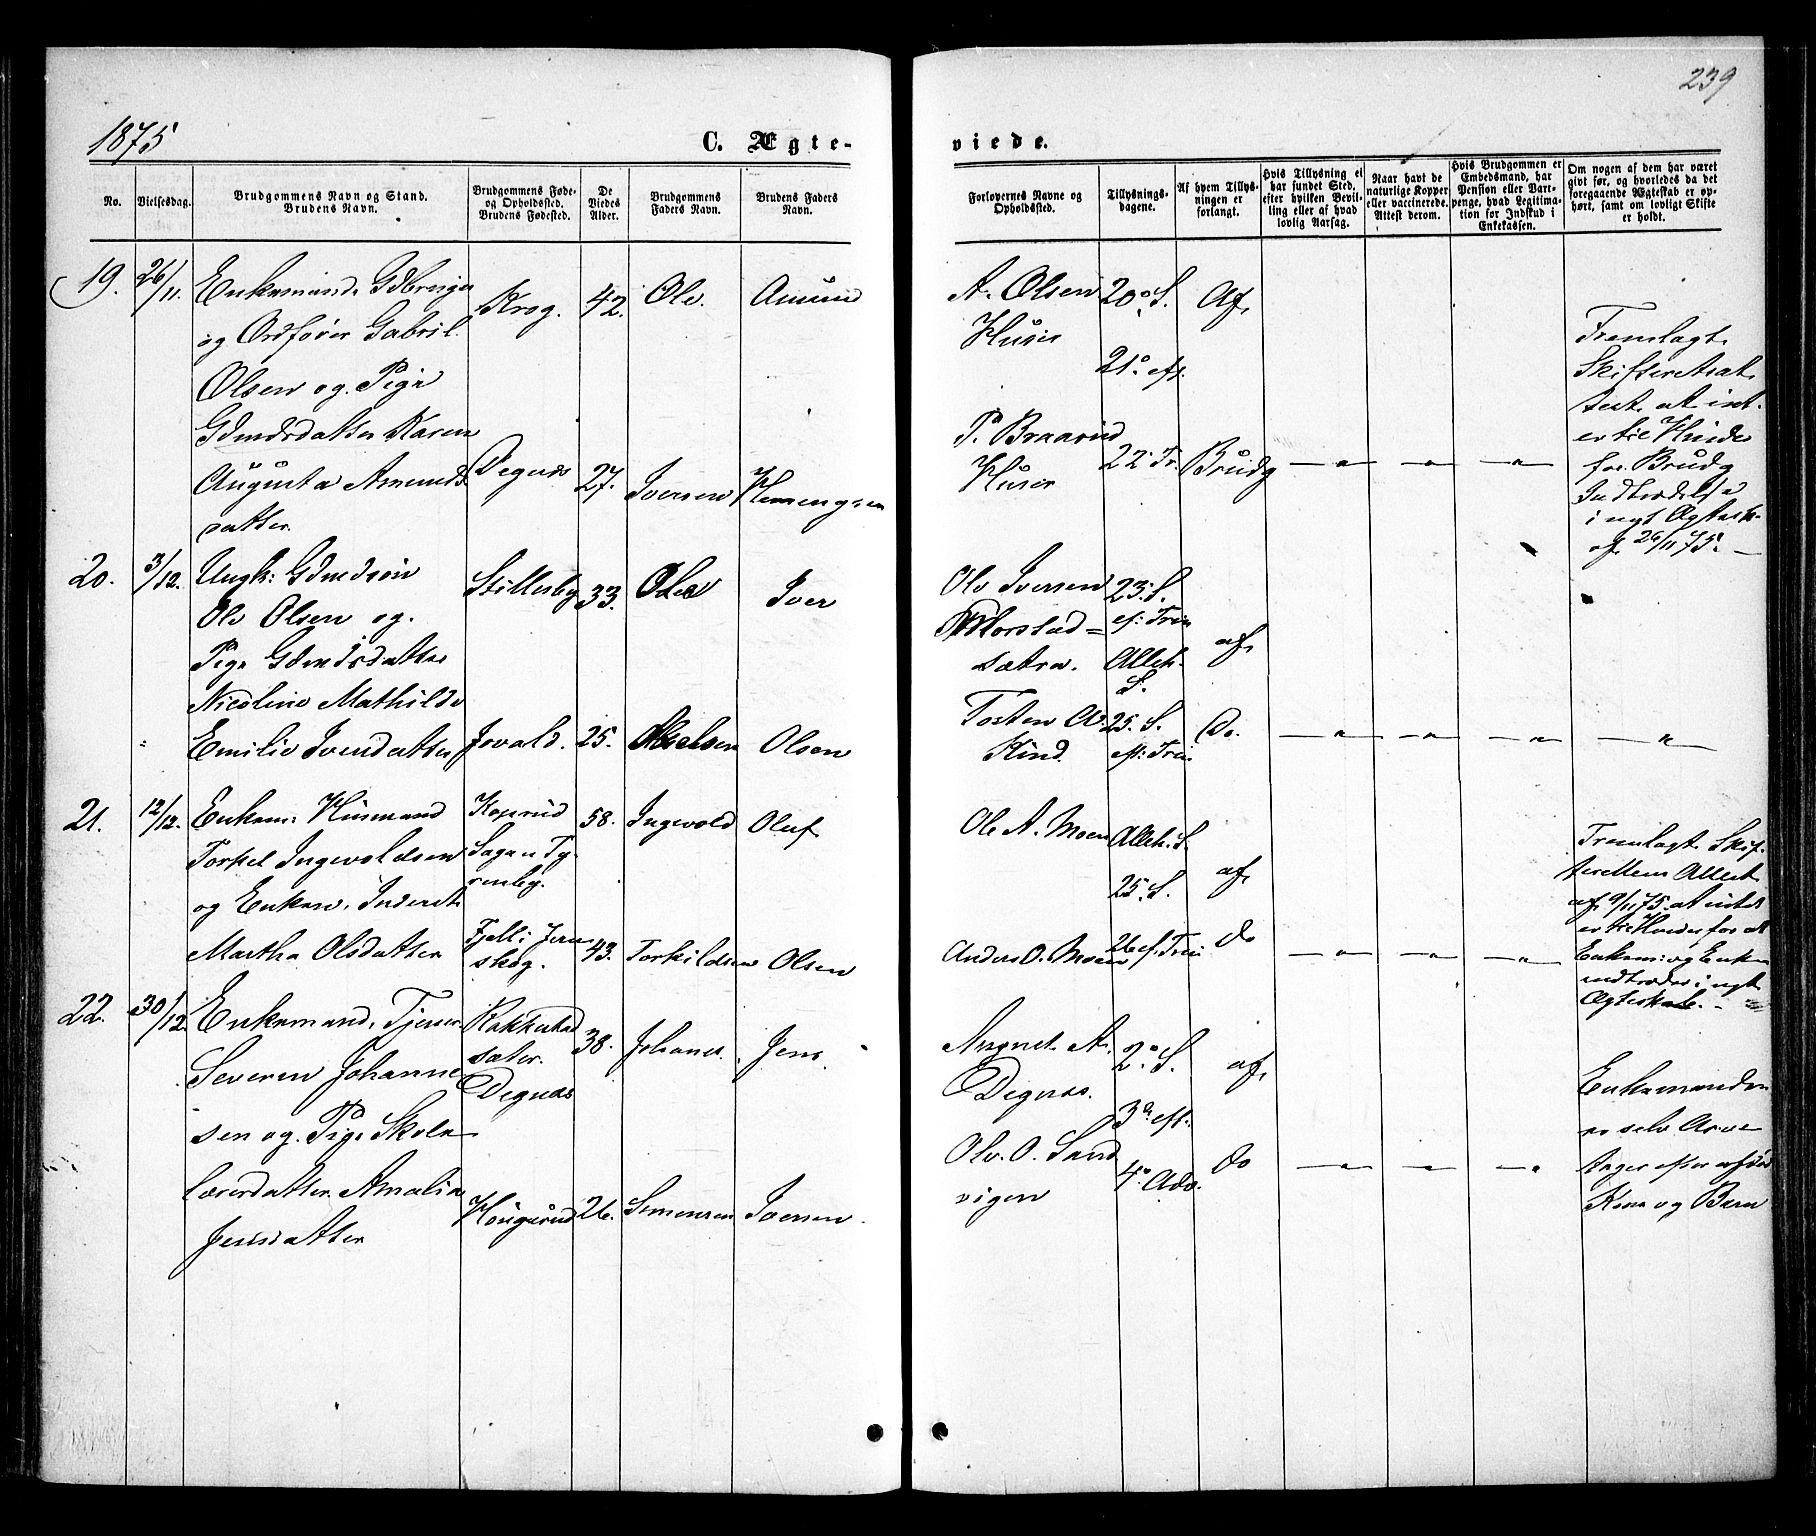 239
1875
C. Ægte-
viede.
No.
Vielsesdag.
Brudgommens Navn og Stand.
Brudens Navn.
Brudgommens Føde-
og Opholdssted.
Brudens Fødested.
De
Viedes
Alder.
Brudgommens
Faders Navn.
Brudens Faders
Navn.
Forlovernes Navne og
Opholdssted.
Tillysnings-
dagene.
Af hvem Tillys-
ningen er
forlangt.
Hvis Tillysning ei
har fundet Sted,
efter hvilken Bevil-
ling eller af hvad
lovlig Aarsag.
Naar havt de
naturlige Kopper
eller vaccinerede.
Attest derom.
Hvis Brudgommen er
Embedsmand, har
Pension eller Vart-
penge, hvad Legitima-
tion for Indskud i
Enkekassen.
Om nogen af dem har været
givt før, og hvorledes da det
foregaaende Ægteskab er op-
hørt, samt om lovligt Skifte
er holdt.
19. 26/11. Enkemand Gdbruger
og Ordfører Gabriel
Olsen og Pige
Gdmdsdatter Karen
Augusta Amunds
datter
Krog. 42. Ole. Amund
Degnæs 27. Iversen Flemengsen
A. Olsen
Huser
P. Braarud
Huser
20. S.
21. eft.
22. Tr.
Af
Brudg
Fremlagt
Skifteretsat
test at intet
er til Hinder
for Brudg
Indtrædelse
i nyt Ægtesk.
af 26/11 75.
20. 3/12. Ungk: Gdmdsøn
Ole Olsen og
Pige Gdmdsdatter
Nicoline Mathilde
Emilie Iversdatter
Stillesby 33. Ole Iver
Jovald. 25. Olsen
Ole Iversen
Morstad=
sætra.
Tosten A.
Kind.
23. S.
ef: Trin
Alleh.
S.
25. S.
eft: Trin
af
Do.
21. 12/12. Enkem: Husmand
Torkel Ingevoldsen
og Enken Inderst
Martha Olsdatter
Koxrud
58. Ingevold Oluf
Fjell i Jern
skog. 43. Torkildsen Olsen
Ole A. Moen
Anders O. Moen
Alleh. S.
25. S.
26 ef. Trin
af
do
Fremlagt Skif-
terettens Attest
af 9/11 75. at intet
er til Hinder for at
Enkem: og Enken
indtræder i nyt
Ægteskab.
22. 30/12 Enkemand, Tjener
Severin Johanne
sen og Pige Skole
lærerdatter Amalia
Jensdatter
Kokkestad
sæter.
Degnæs
38. Johanes. Jens
Hougerud 26. Simensen Iversen.
August A.
Degnæs.
Ole O. Sand
vigen
2. S.
3. eft.
4. Adv.
af
do
Enkemanden
er selv Arve
tager efter afdøde
Kone og Barn